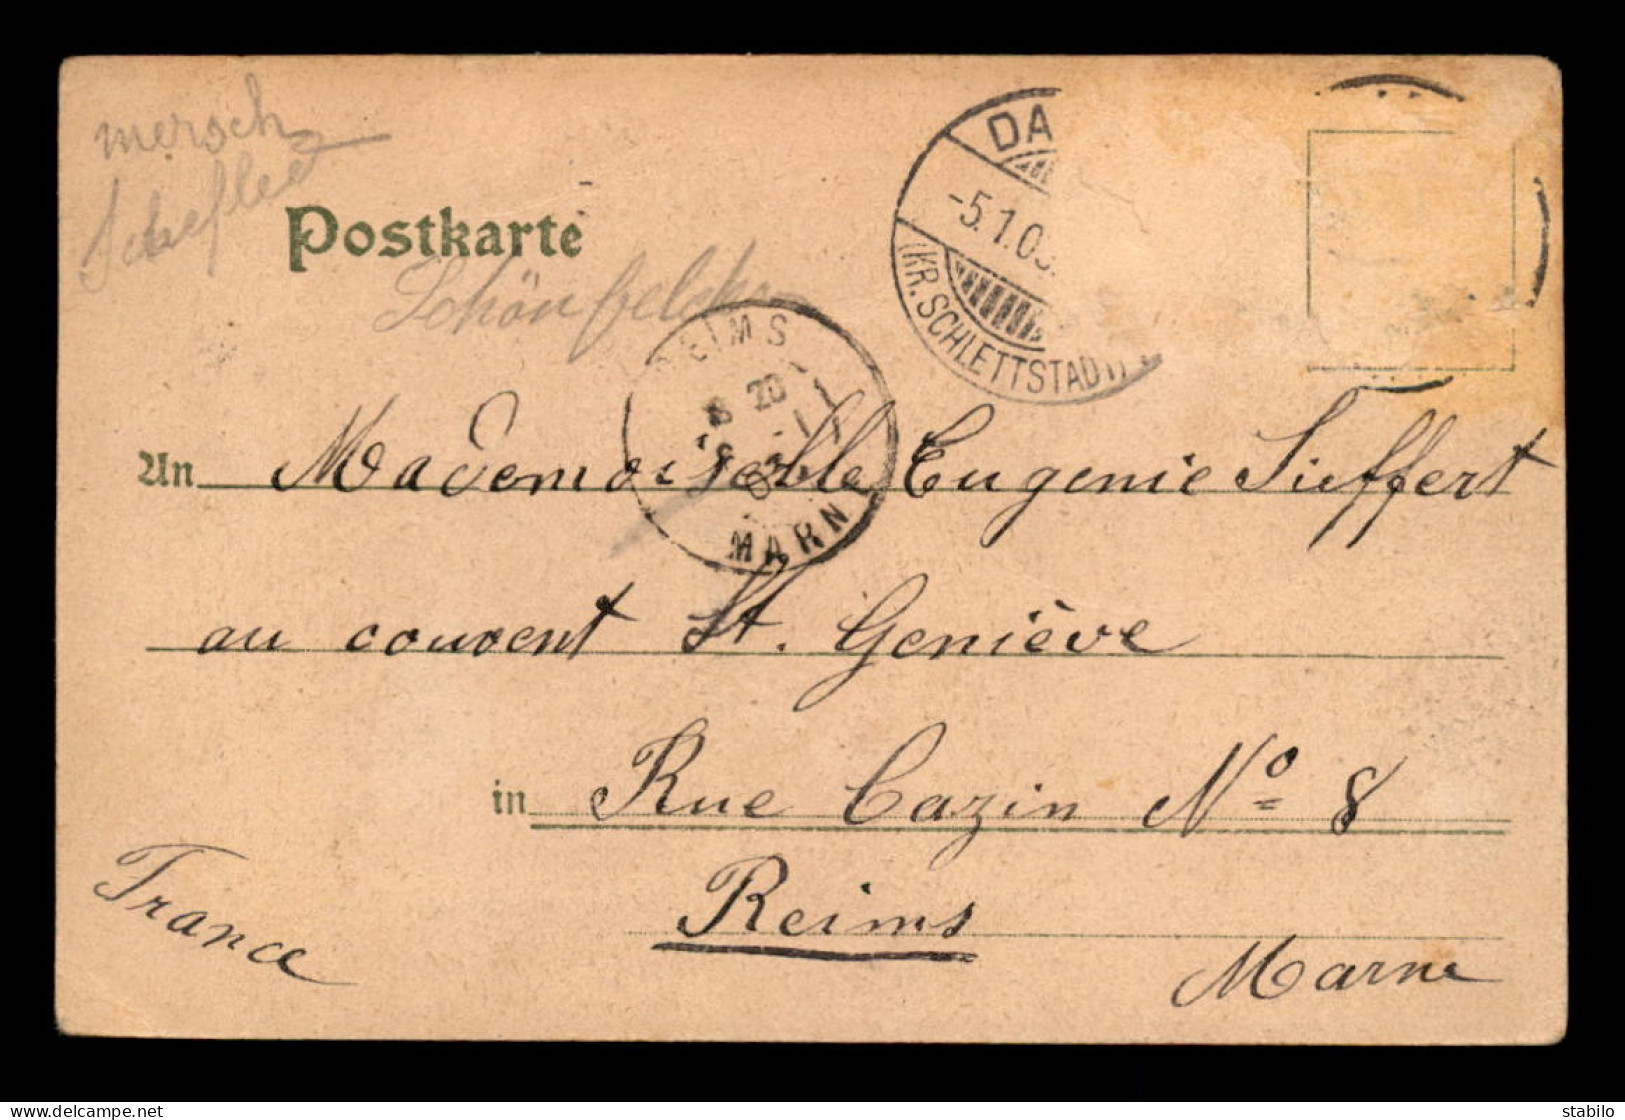 mersch
Postkarte
Schönfelder
DA
-5.1.03.
(KR. SCHLETTSTADT)
REIMS
8 20
MARNE
An Mademoiselle Eugenie Sieffert
au couvent St. Geniève
in Rue Cazin No 8
Reims
France
Marne
stabilo